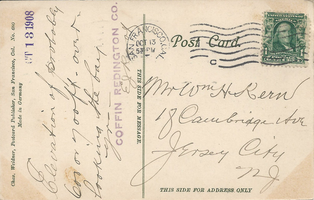 Chas. Weidner, Postcard Publisher, San Francisco, Cal. No.
Made in Germany
OCT 13 1908
COFFIN REDINGTON CO.
Elevation of Probably
60 or 70 ft - over-
looking the bay
SAN FRANCISCO, CAL.
OCT 13
5 PM
C
Post Card.
Mr Wm H Kern
18 Cambridge Ave
Jersey City
NJ
THIS SIDE FOR ADDRESS ONLY